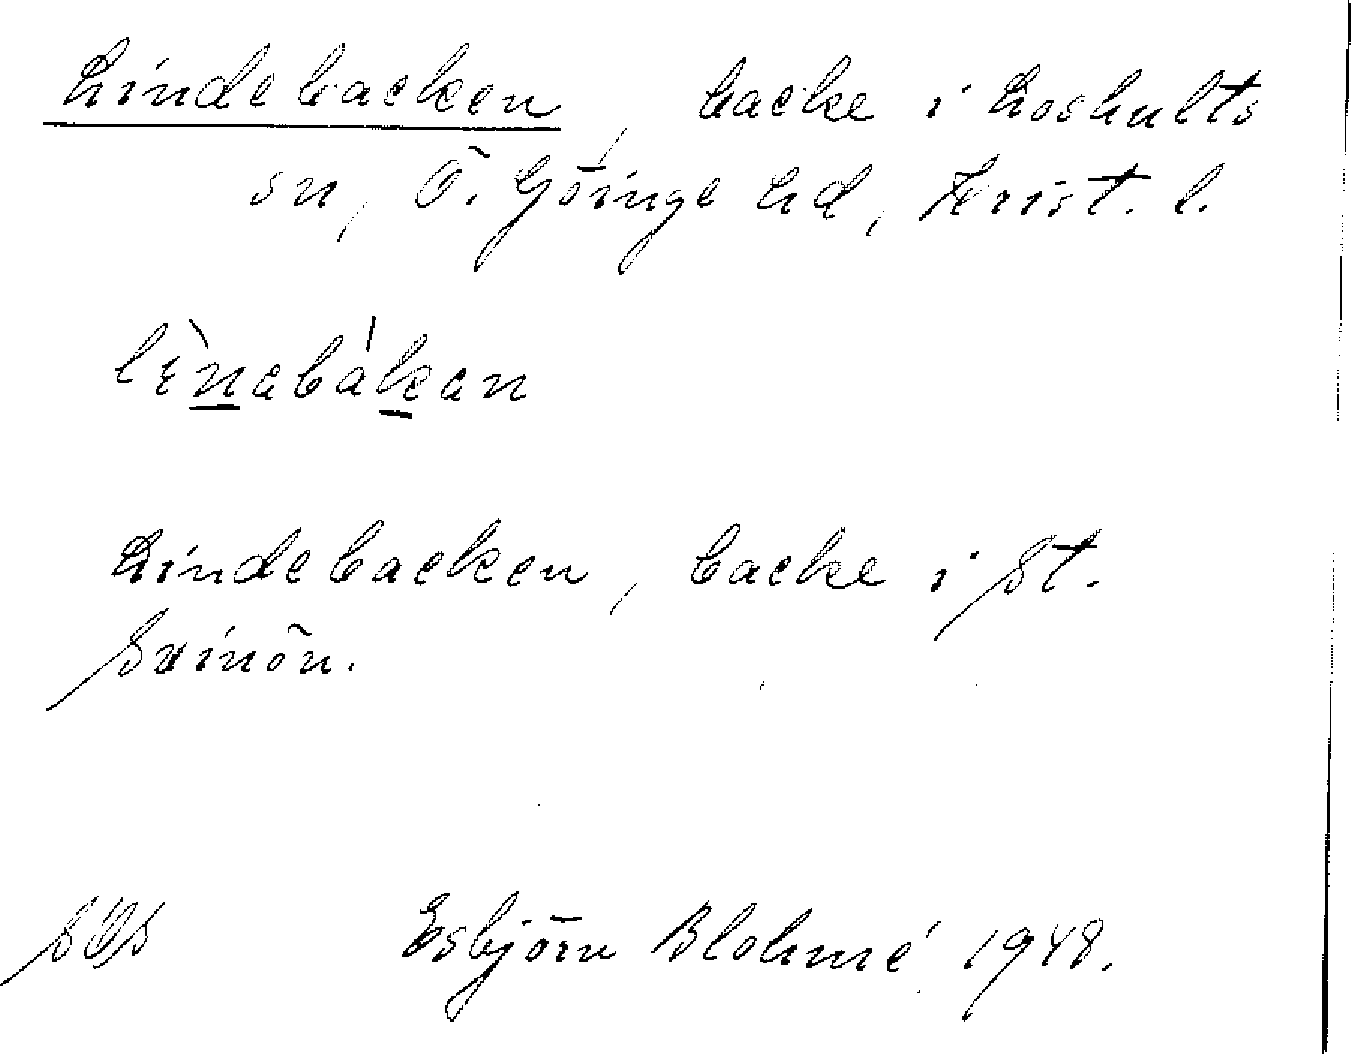 Lindebacken, backe i Loshults
sn, Ö. Göinge hd, Krist. l.
lènabákan
Lindebacken, backe i St.
Svinön.
Esbjörn Blohmé 1948.